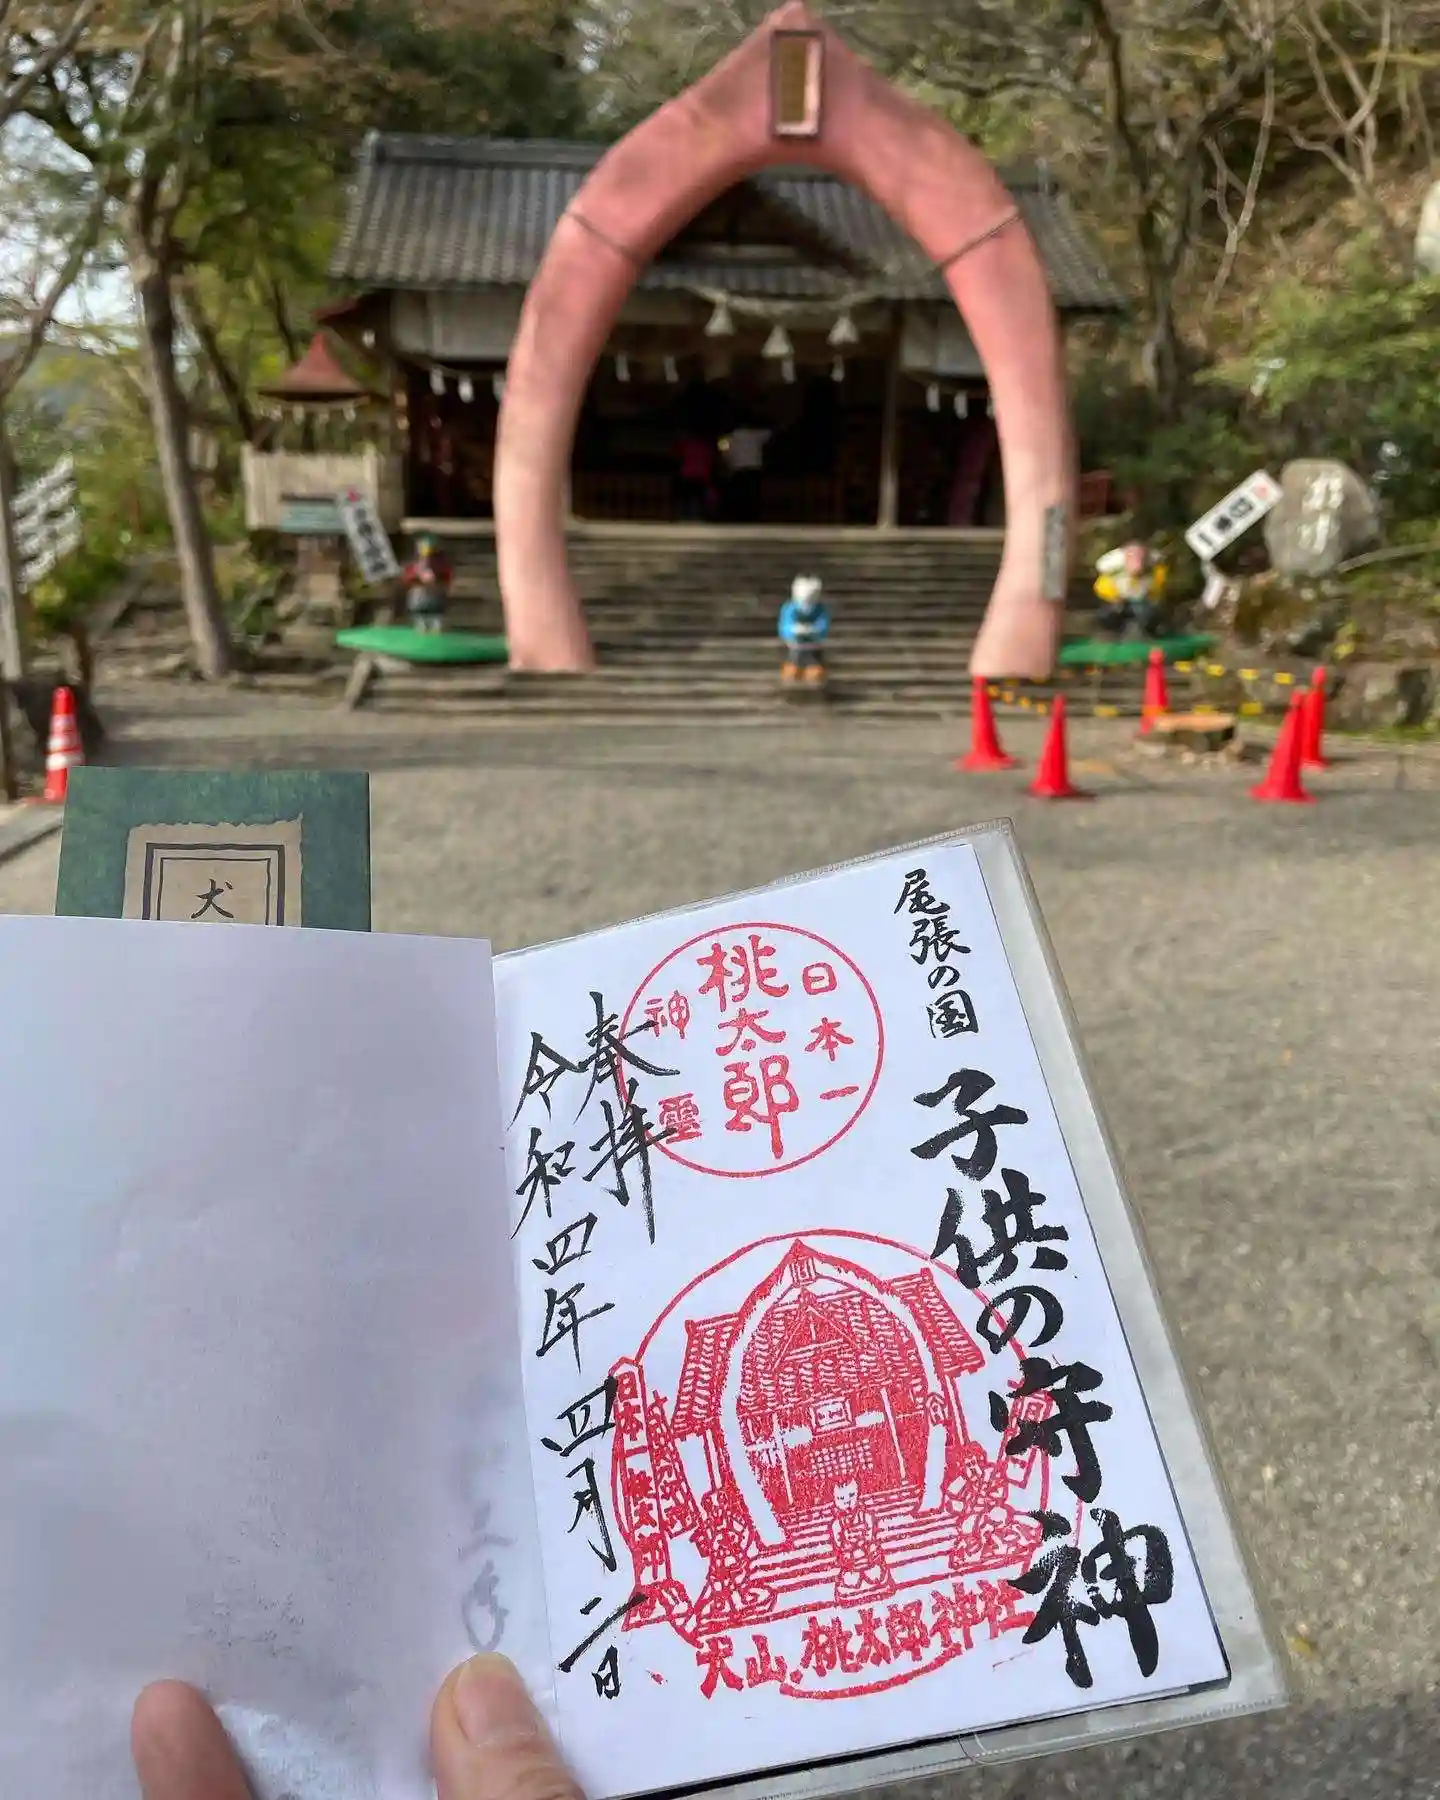 犬
尾張の国
子供の守神
日本一
桃太郎
神霊
奉拝
令和四年四月二日
日本一桃太郎
犬山.桃太郎神社